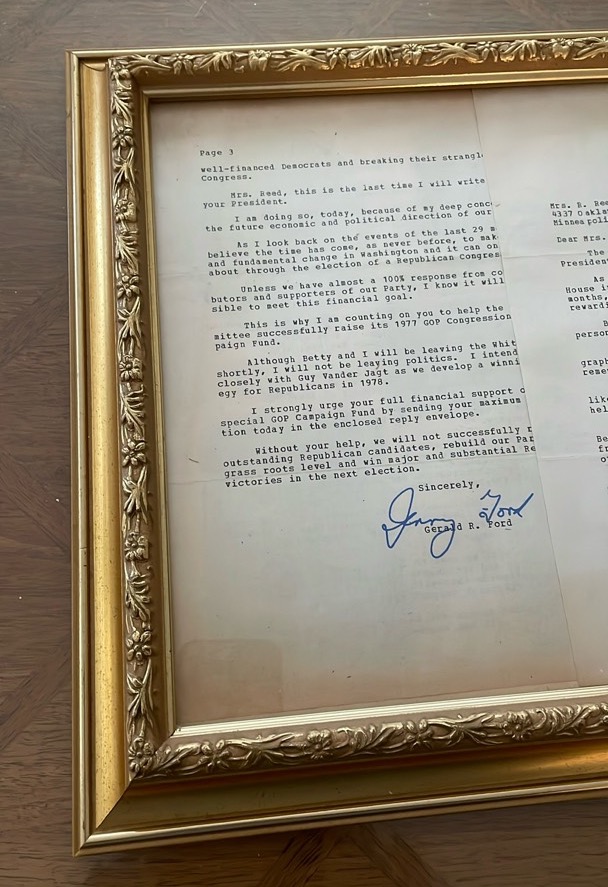 Page 3
well-financed Democrats and breaking their strangl
Congress.
Mrs. Reed, this is the last time I will write
your President.
I am doing so, today, because of my deep conc
the future economic and political direction of our
As I look back on the events of the last 29 m
believe the time has come, as never before, to mak
and fundamental change in Washington and it can on
about through the election of a Republican Congres
Unless we have almost a 100% response from co
butors and supporters of our Party, I know it will
sible to meet this financial goal.
This is why I am counting on you to help the
mittee successfully raise its 1977 GOP Congression
paign Fund.
Although Betty and I will be leaving the Whit
shortly, I will not be leaving politics. I intend
closely with Guy Vander Jagt as we develop a winni
egy for Republicans in 1978.
I strongly urge your full financial support o
special GOP Campaign Fund by sending your maximum
tion today in the enclosed reply envelope.
Without your help, we will not successfully r
outstanding Republican candidates, rebuild our Par
grass roots level and win major and substantial Re
victories in the next election.
Sincerely,
Jerry Ford
Gerald R. Ford
Mrs. R. Ree
4337 Oakla
Minneapolis
Dear Mrs.
The
President
As
House i
months,
rewardi
B
person
graph
reme
lik
hel
Be
fr
o